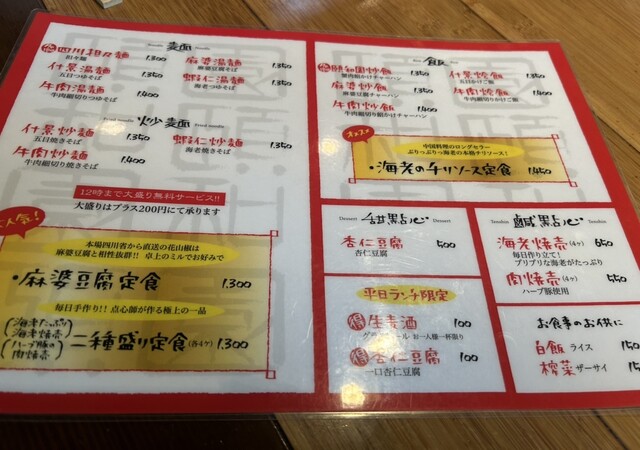 Noodle 麦面 Noodle
四川担々麺 1.300
担々麺
什景湯麺 1.350
五目つゆそば
牛肉湯麺 1.400
牛肉細切りつゆそば
麻婆湯麺 1.350
麻婆豆腐そば
蝦仁湯麺 1.350
海老つゆそば
Fried noodle 炒麦面 Fried noodle
什景炒麺 1.350
五目焼きそば
牛肉炒麺 1.400
牛肉細切り焼きそば
蝦仁炒麺 1.350
海老焼きそば
12時まで大盛り無料サービス!!
大盛りはプラス200円にて承ります
人気!
本場四川省から直送の花山椒は
麻婆豆腐と相性抜群!! 卓上のミルでお好みで
・麻婆豆腐定食 1.300
毎日手作り!! 点心師が作る極上の一品
海老たっぷり
海老焼売
ハーブ豚の
肉焼売
二種盛り定食(各4ケ) 1.300
Rice 飯 Rice
頤和園炒飯 1.350
蟹肉餡かけチャーハン
麻婆炒飯 1.350
麻婆豆腐チャーハン
牛肉炒飯 1.400
牛肉細切り餡かけチャーハン
什景燴飯 1.350
五目かけご飯
牛肉燴飯 1.400
牛肉細切りかけご飯
オススメ
中国料理のロングセラー
ぷりっぷりっ海老の本格チリソース!
・海老のチリソース定食 1.450
Dessert 甜點心 Dessert
杏仁豆腐 500
杏仁豆腐
平日ランチ限定
得 生麦酒 100
お一人様一杯限り
得 杏仁豆腐 100
一口杏仁豆腐
Tenshin 鹹點心 Tenshin
海老焼売(4ケ) 650
毎日作り立て!
プリプリな海老がたっぷり
肉焼売(4ケ) 550
ハーブ豚使用
お食事のお供に
白飯 ライス
搾菜 ザーサイ